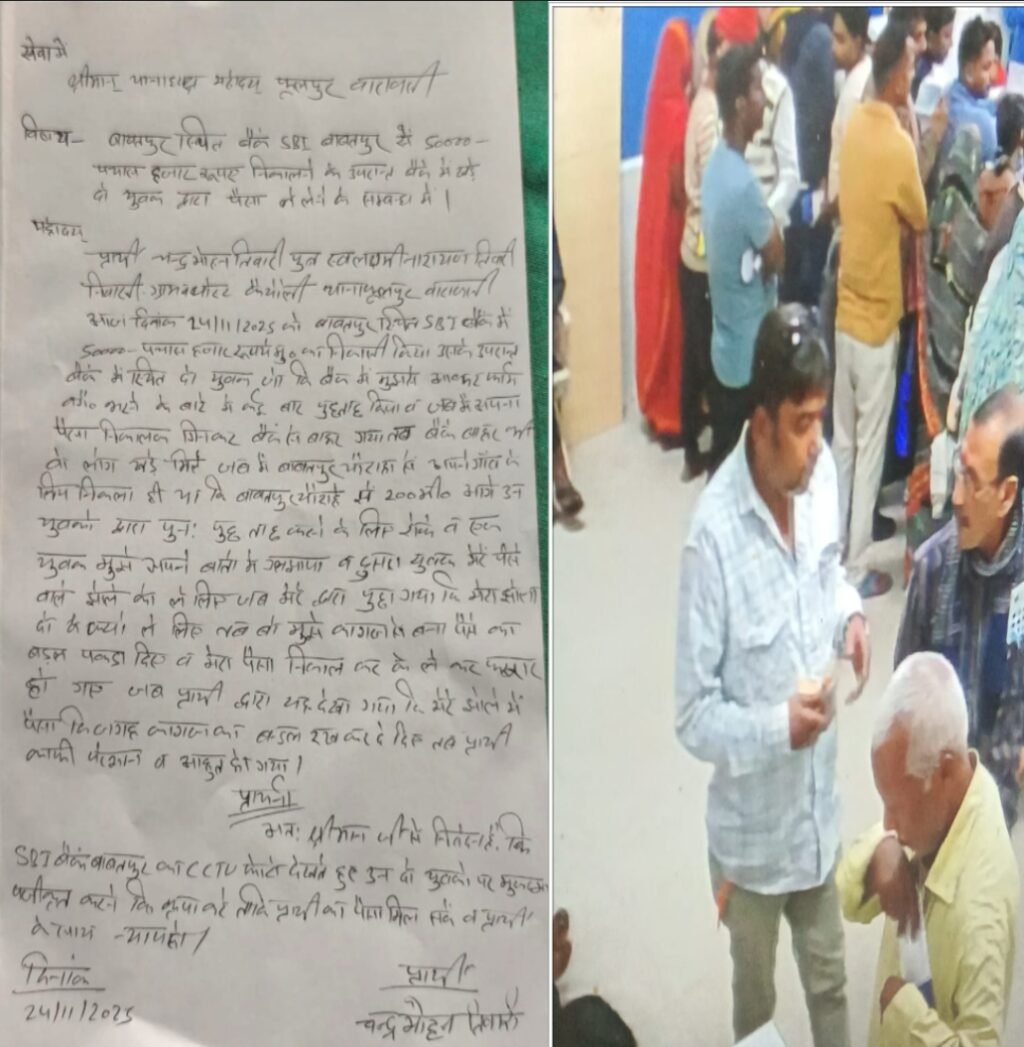 सेवा में
श्रीमान् थानाध्यक्ष महोदय फूलपुर वाराणसी
विषय- बाबतपुर स्थित बैंक SBI बाबतपुर से 50000-
पचास हजार रूपए निकालने के उपरान्त बैंक में खड़े
दो युवक द्वारा पैसा ले लेने के सम्बन्ध में।
महोदय
प्रार्थी चन्द्रमोहन तिवारी पुत्र स्व लक्ष्मीनारायण तिवारी
निवासी ग्राम कैथोली थाना फूलपुर वाराणसी
आज दिनांक 24/11/2025 को बाबतपुर स्थित SBI बैंक में
50000- पचास हजार रूपये का निकासी किया उसके उपरान्त
बैंक में स्थित दो युवक जो कि बैंक में मुझसे आकर फार्म
भरने के बारे में कई बार पुछताछ किया व जब मैं अपना
पैसा निकालकर गिनकर बैंक से बाहर गया तब बैंक बाहर भी
वो लोग खड़े मिले जब मैं बाबतपुर चौराहा से अपने गाँव के
लिए निकला ही था कि बाबतपुर चौराहे से 200मी० आगे उन
युवको द्वारा पुनः पुछ ताछ करने के लिए रोके व एक
युवक मुझे अपने बातो में उलझाया व दुसरा युवक मेरे पैसे
वाले झोले को ले लिए जब मेरे द्वारा पुछा गया कि मेरा झोला
क्यो ले लिए तब वो मुझे कागज से बना पैसे का
बंडल पकड़ा दिए व मेरा पैसा निकाल कर के ले कर फरार
हो गए जब प्रार्थी द्वारा यह देखा गया कि मेरे झोले में
पैसा कि जगह कागज का बंडल रख कर दे दिए तब प्रार्थी
काफी परेशान व आहत हो गया।
प्रार्थना
अतः श्रीमान जी से निवेदन है कि
SBI बैंक बाबतपुर का CCTV फोटो देखते हुए उन दो युवको पर मुकदमा
पंजीकृत करने कि कृपा करे ताकि प्रार्थी का पैसा मिल सके व प्रार्थी
के साथ न्याय हो।
दिनांक
24/11/2025
प्रार्थी
चन्द्रमोहन तिवारी